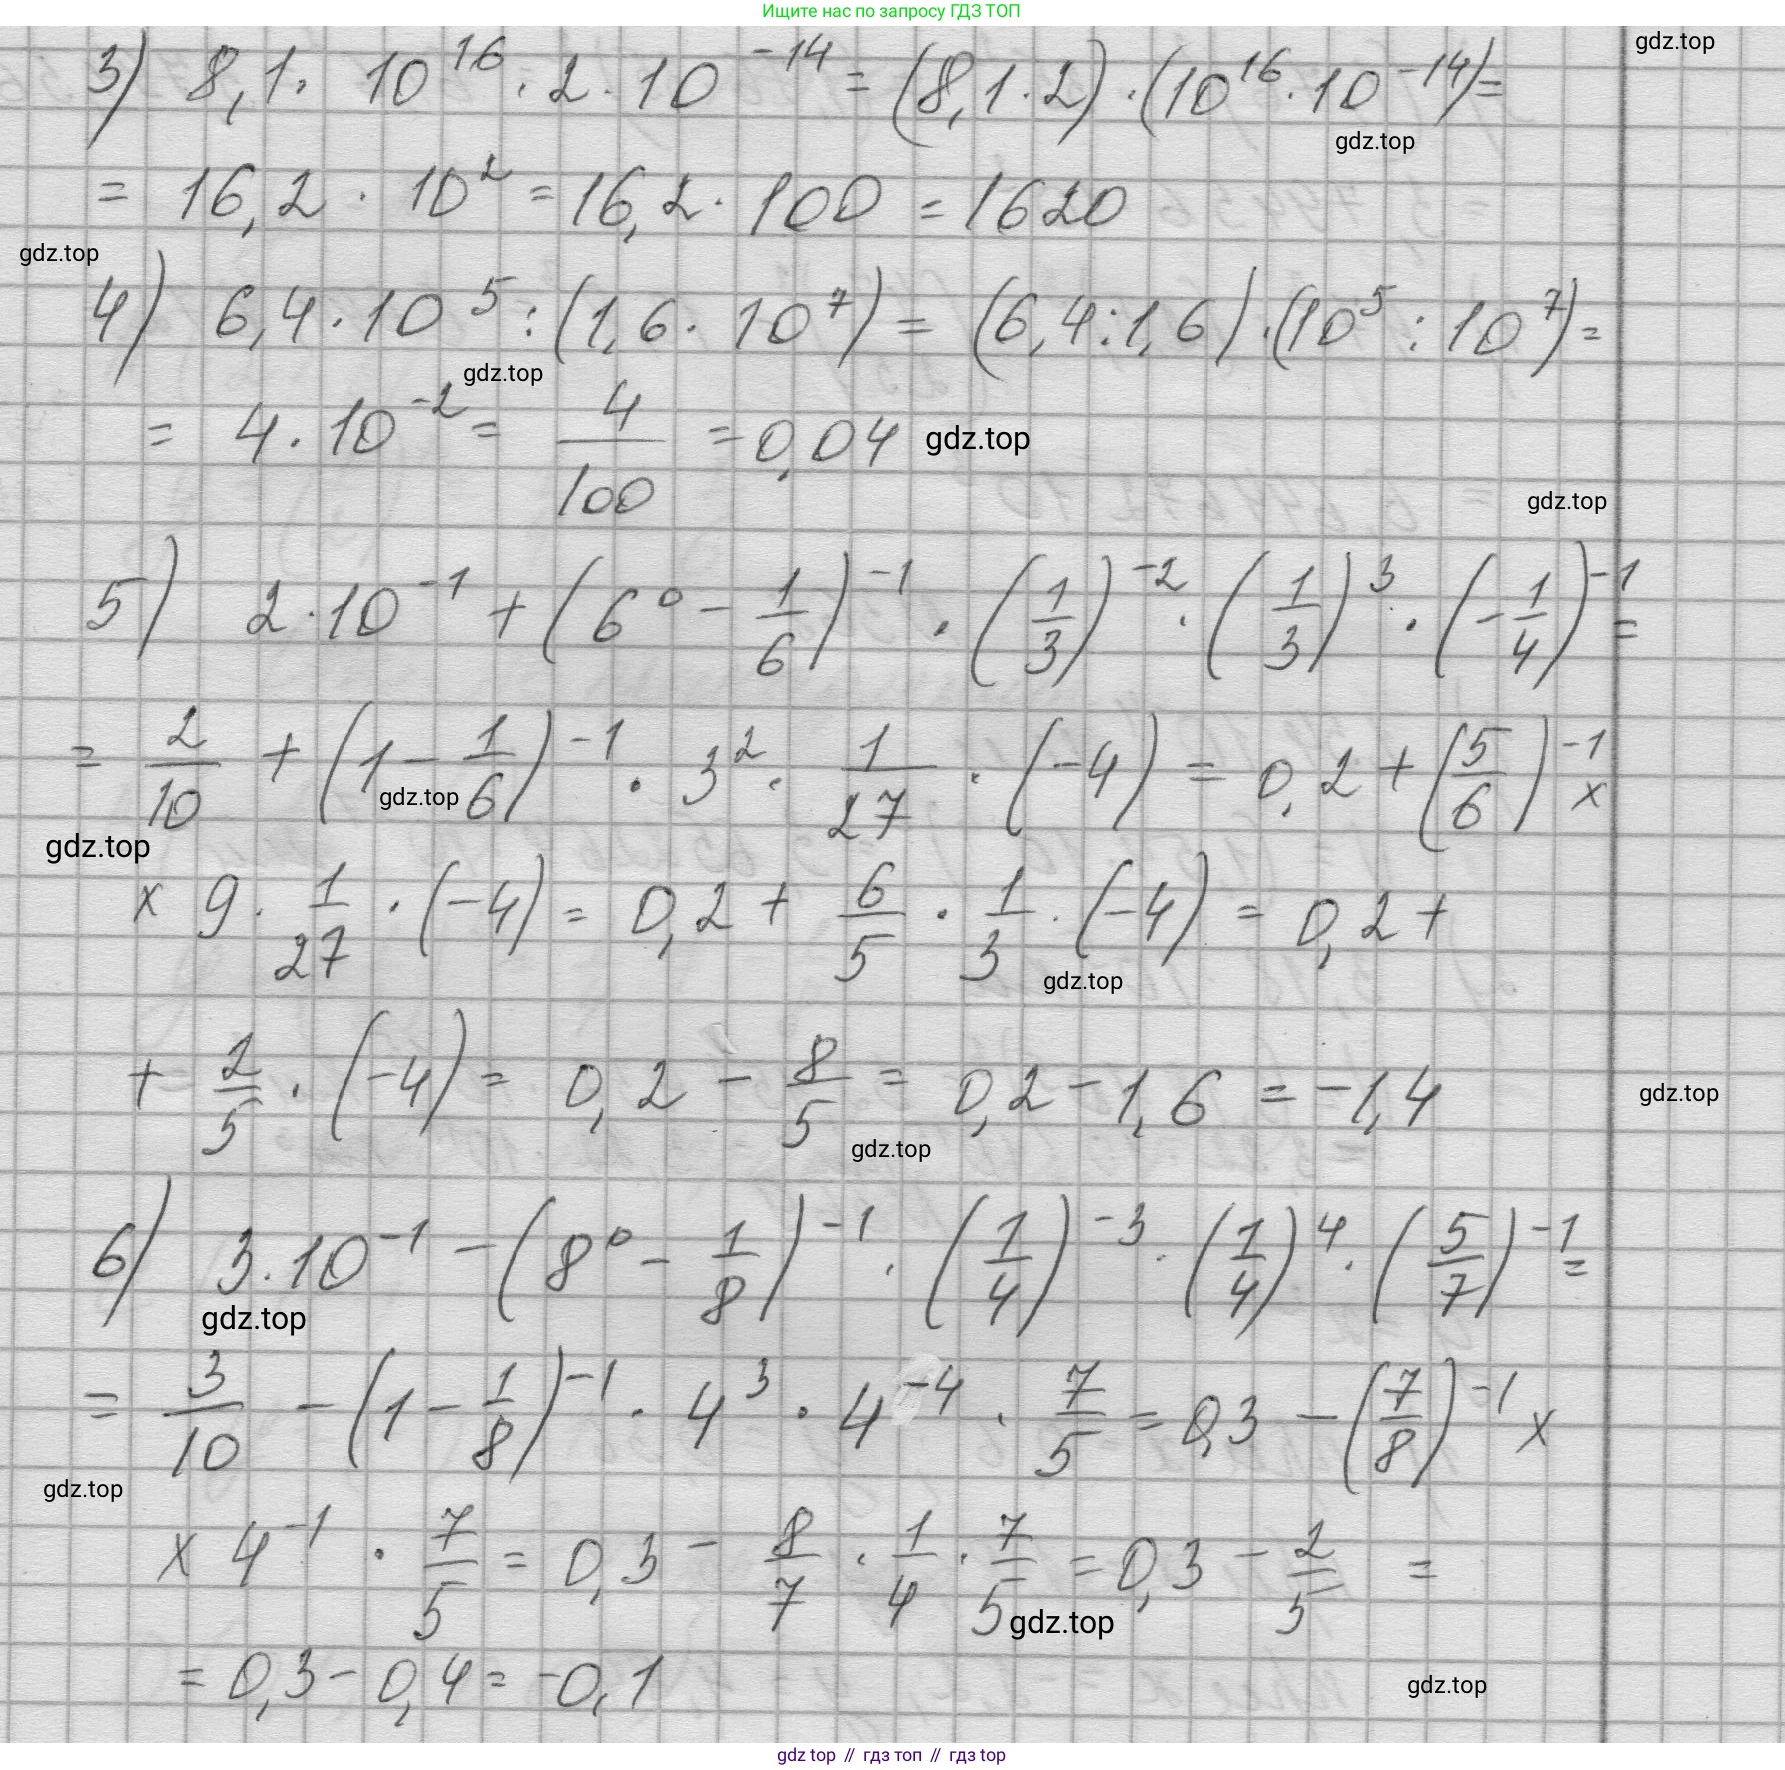 Ищите нас по запросу ГДЗ ТОП
gdz.top
3) 8,1 · 10^16 · 2 · 10^-14 = (8,1 · 2) · (10^16 · 10^-14) =
gdz.top
= 16,2 · 10^2 = 16,2 · 100 = 1620
gdz.top
4) 6,4 · 10^5 : (1,6 · 10^7) = (6,4 : 1,6) · (10^5 : 10^7) =
gdz.top
= 4 · 10^-2 = 4/100 = 0,04 gdz.top
gdz.top
5) 2 · 10^-1 + (6^0 - 1/6)^-1 · (1/3)^-2 · (1/3)^3 · (-1/4)^-1 =
= 2/10 + (1 - 1/6)^-1 · 3^2 · 1/27 · (-4) = 0,2 + (5/6)^-1 ×
gdz.top
gdz.top
× 9 · 1/27 · (-4) = 0,2 + 6/5 · 1/3 · (-4) = 0,2 +
gdz.top
+ 2/5 · (-4) = 0,2 - 8/5 = 0,2 - 1,6 = -1,4
gdz.top
gdz.top
6) 3 · 10^-1 - (8^0 - 1/8)^-1 · (1/4)^-3 · (1/4)^4 · (5/7)^-1 =
gdz.top
= 3/10 - (1 - 1/8)^-1 · 4^3 · 4^-4 · 7/5 = 0,3 - (7/8)^-1 ×
gdz.top
× 4^-1 · 7/5 = 0,3 - 8/7 · 1/4 · 7/5 = 0,3 - 2/5 =
gdz.top
= 0,3 - 0,4 = -0,1
gdz.top
gdz top // гдз топ // гдз top